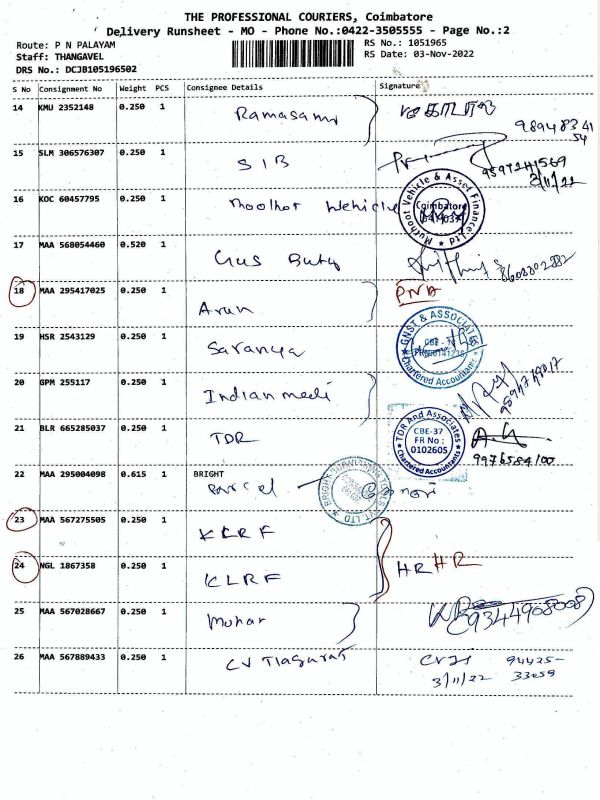 THE PROFESSIONAL COURIERS, Coimbatore
Delivery Runsheet - MO - Phone No.:0422-3505555 - Page No.:2
Route: P N PALAYAM
RS No.: 1051965
Staff: THANGAVEL
RS Date: 03-Nov-2022
DRS No.: DCJB105196502
S No Consignment No Weight PCS Consignee Details Signature
14 KMU 2352148 0.250 1 Ramasamy
98948 3341
54
15 SLM 306576307 0.250 1 SIB
3/11/22
16 KOC 60457795 0.250 1 Vehicle
Muthoot Vehicle & Asset Finance Ltd
Coimbatore
17 MAA 568054460 0.520 1 Gus
8602802882
18 MAA 295417025 0.250 1 Arun
19 HSR 2543129 0.250 1 Saranya
GNST & ASSOCIATES
Chartered Accountants
20 GPM 255117 0.250 1 Indian medi
21 BLR 665285037 0.250 1 TDR
TDR And Associates
CBE-37
FR No :
010260S
Chartered Accountants
9976584100
22 MAA 295004098 0.615 1 BRIGHT
Parcel
23 MAA 567275505 0.250 1 KLRF
24 NGL 1867358 0.250 1 KLRF
HR HR
25 MAA 567028667 0.250 1 Mohan
9344908008
26 MAA 567889433 0.250 1 CV
94425-
3/11/22 33059